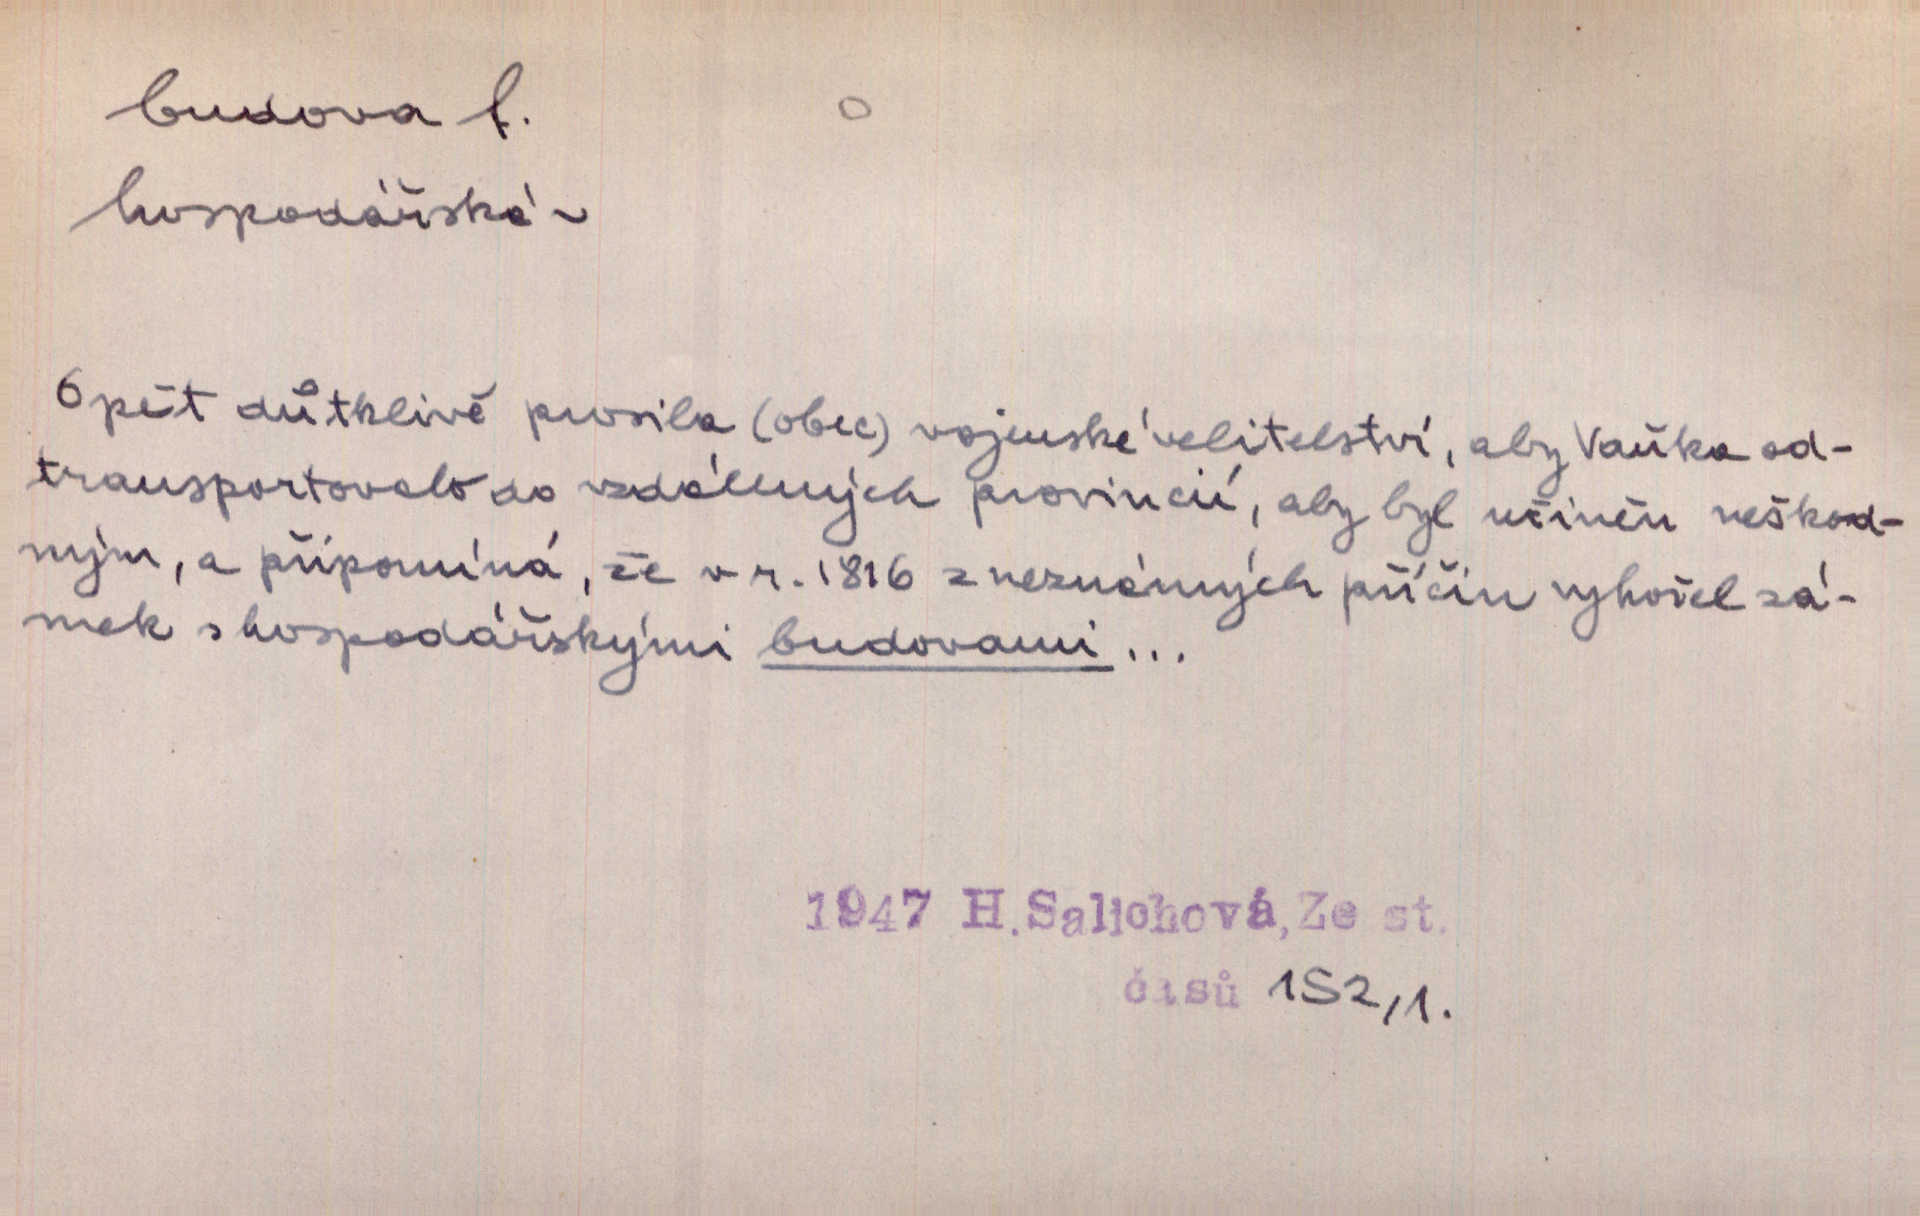 budova f.
hospodářská ~
Opět důtklivě prosila (obec) vojenské velitelství, aby Vaňka od-
transportovalo do vzdálených provincií, aby byl učiněn neškod-
ným, a připomíná, že v r. 1816 z neznámých příčin vyhořel zá-
mek s hospodářskými budovami ...
1947 H. Salichová, Ze st.
časů 152,1.